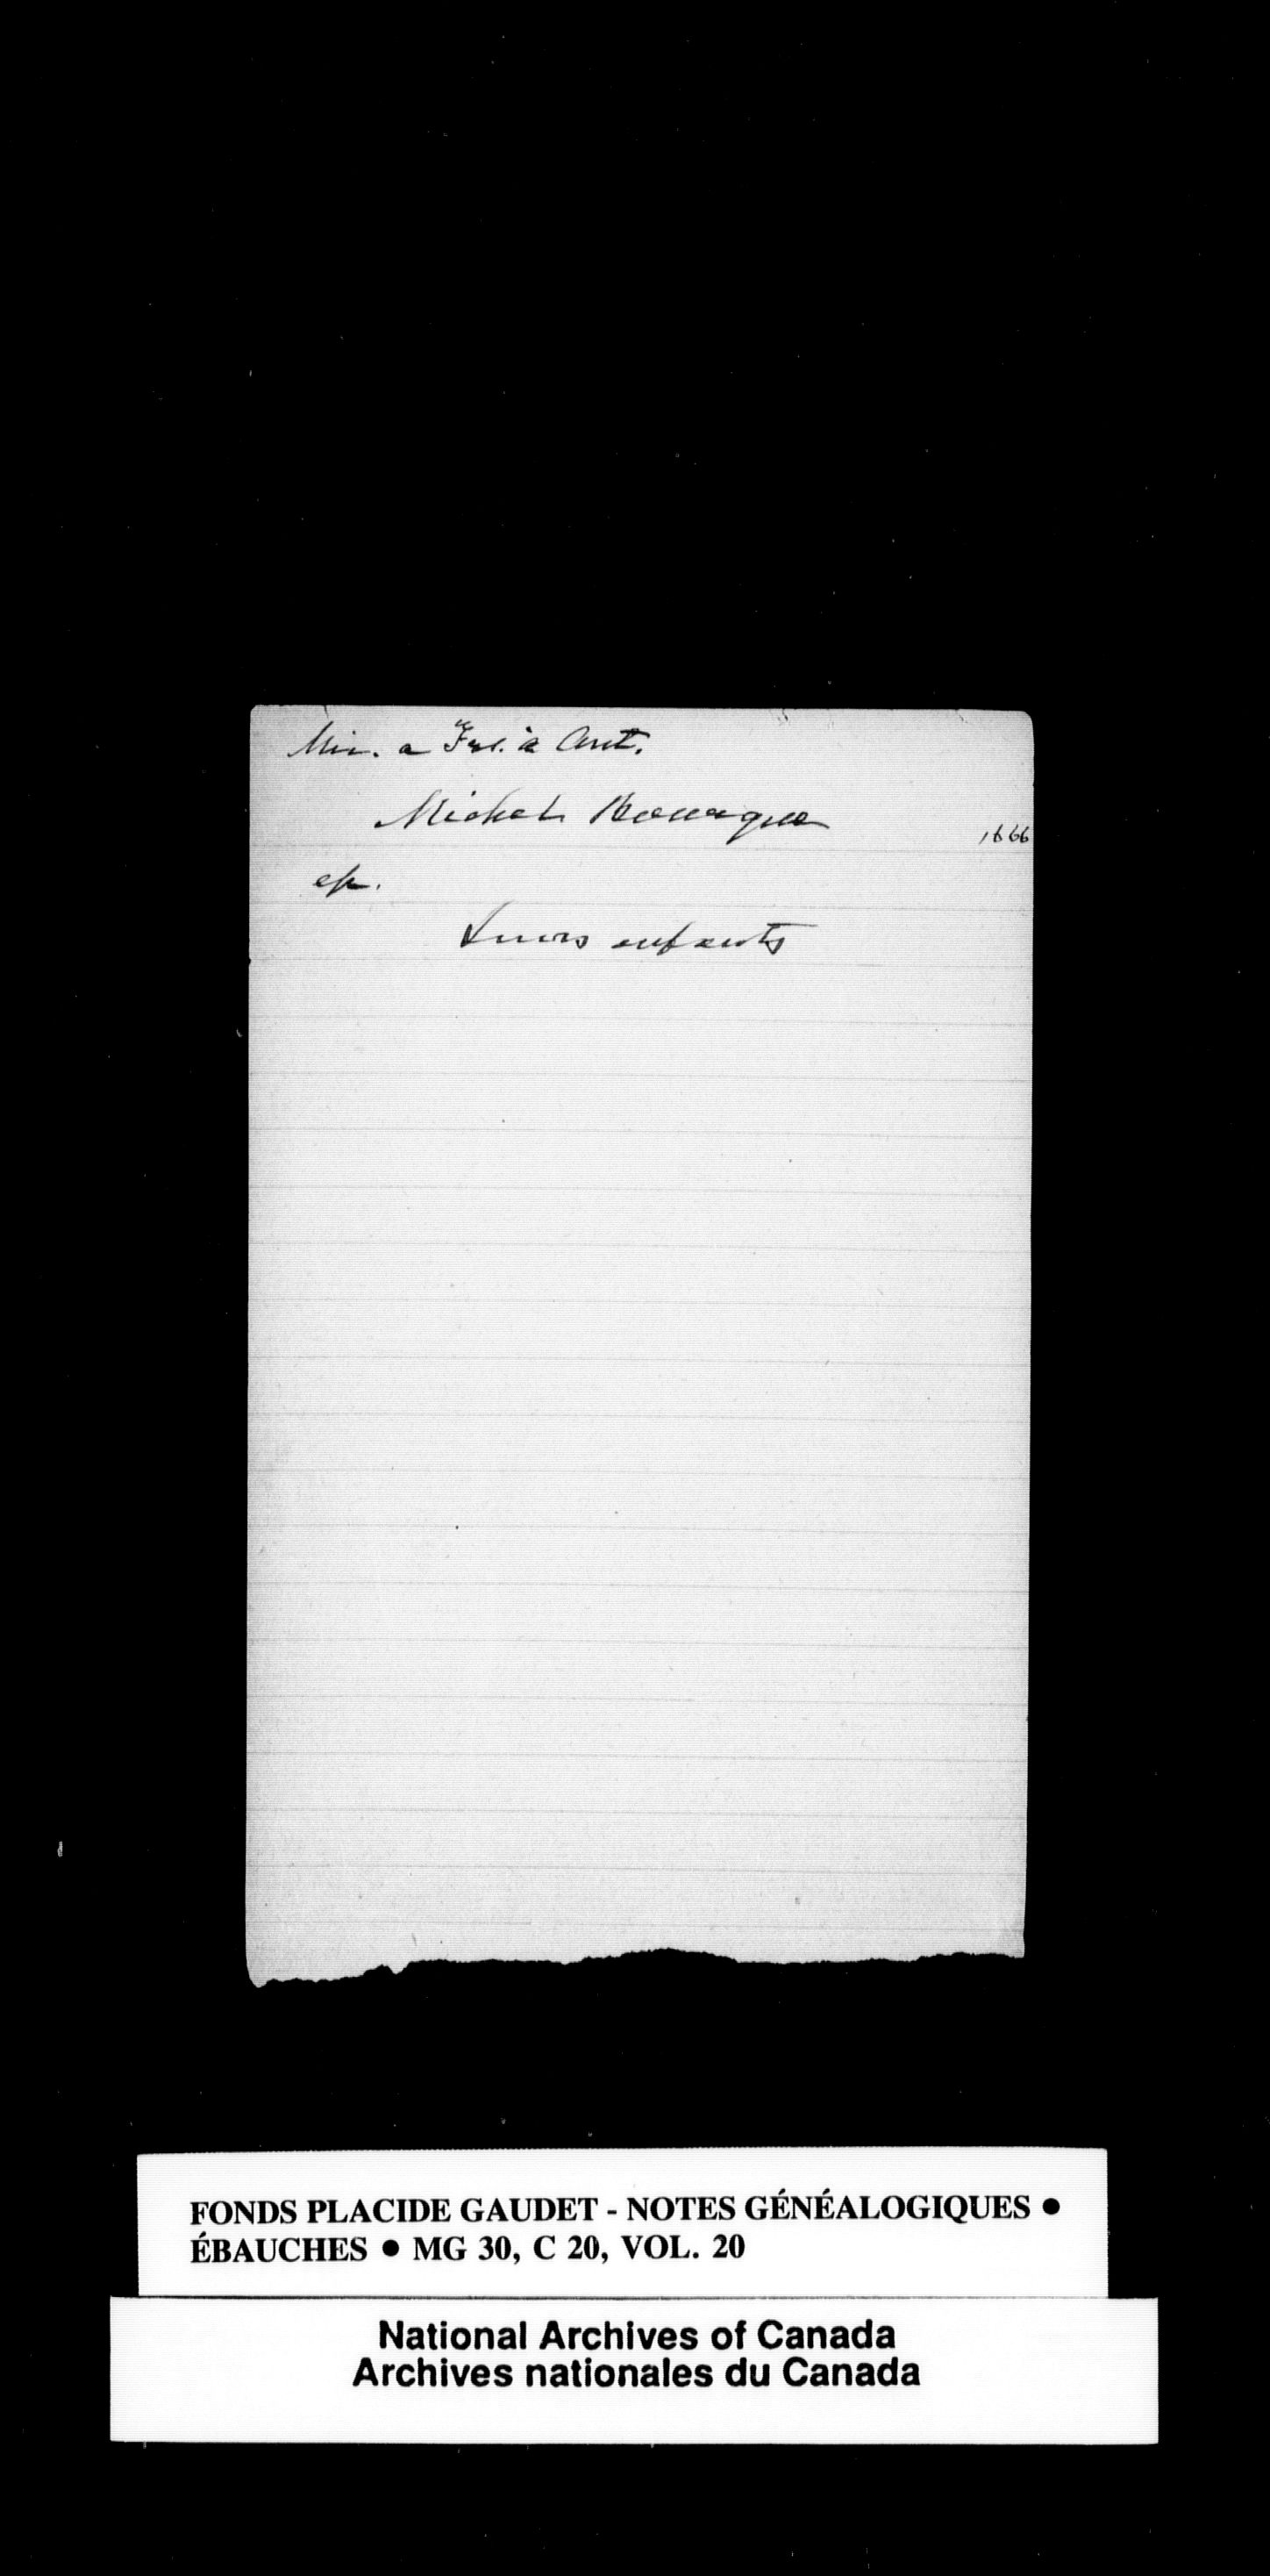 Mic. à Frs. à Ant.
Michel Bourque
1666
ép.
Leurs enfants
FONDS PLACIDE GAUDET - NOTES GÉNÉALOGIQUES ●
ÉBAUCHES ● MG 30, C 20, VOL. 20
National Archives of Canada
Archives nationales du Canada